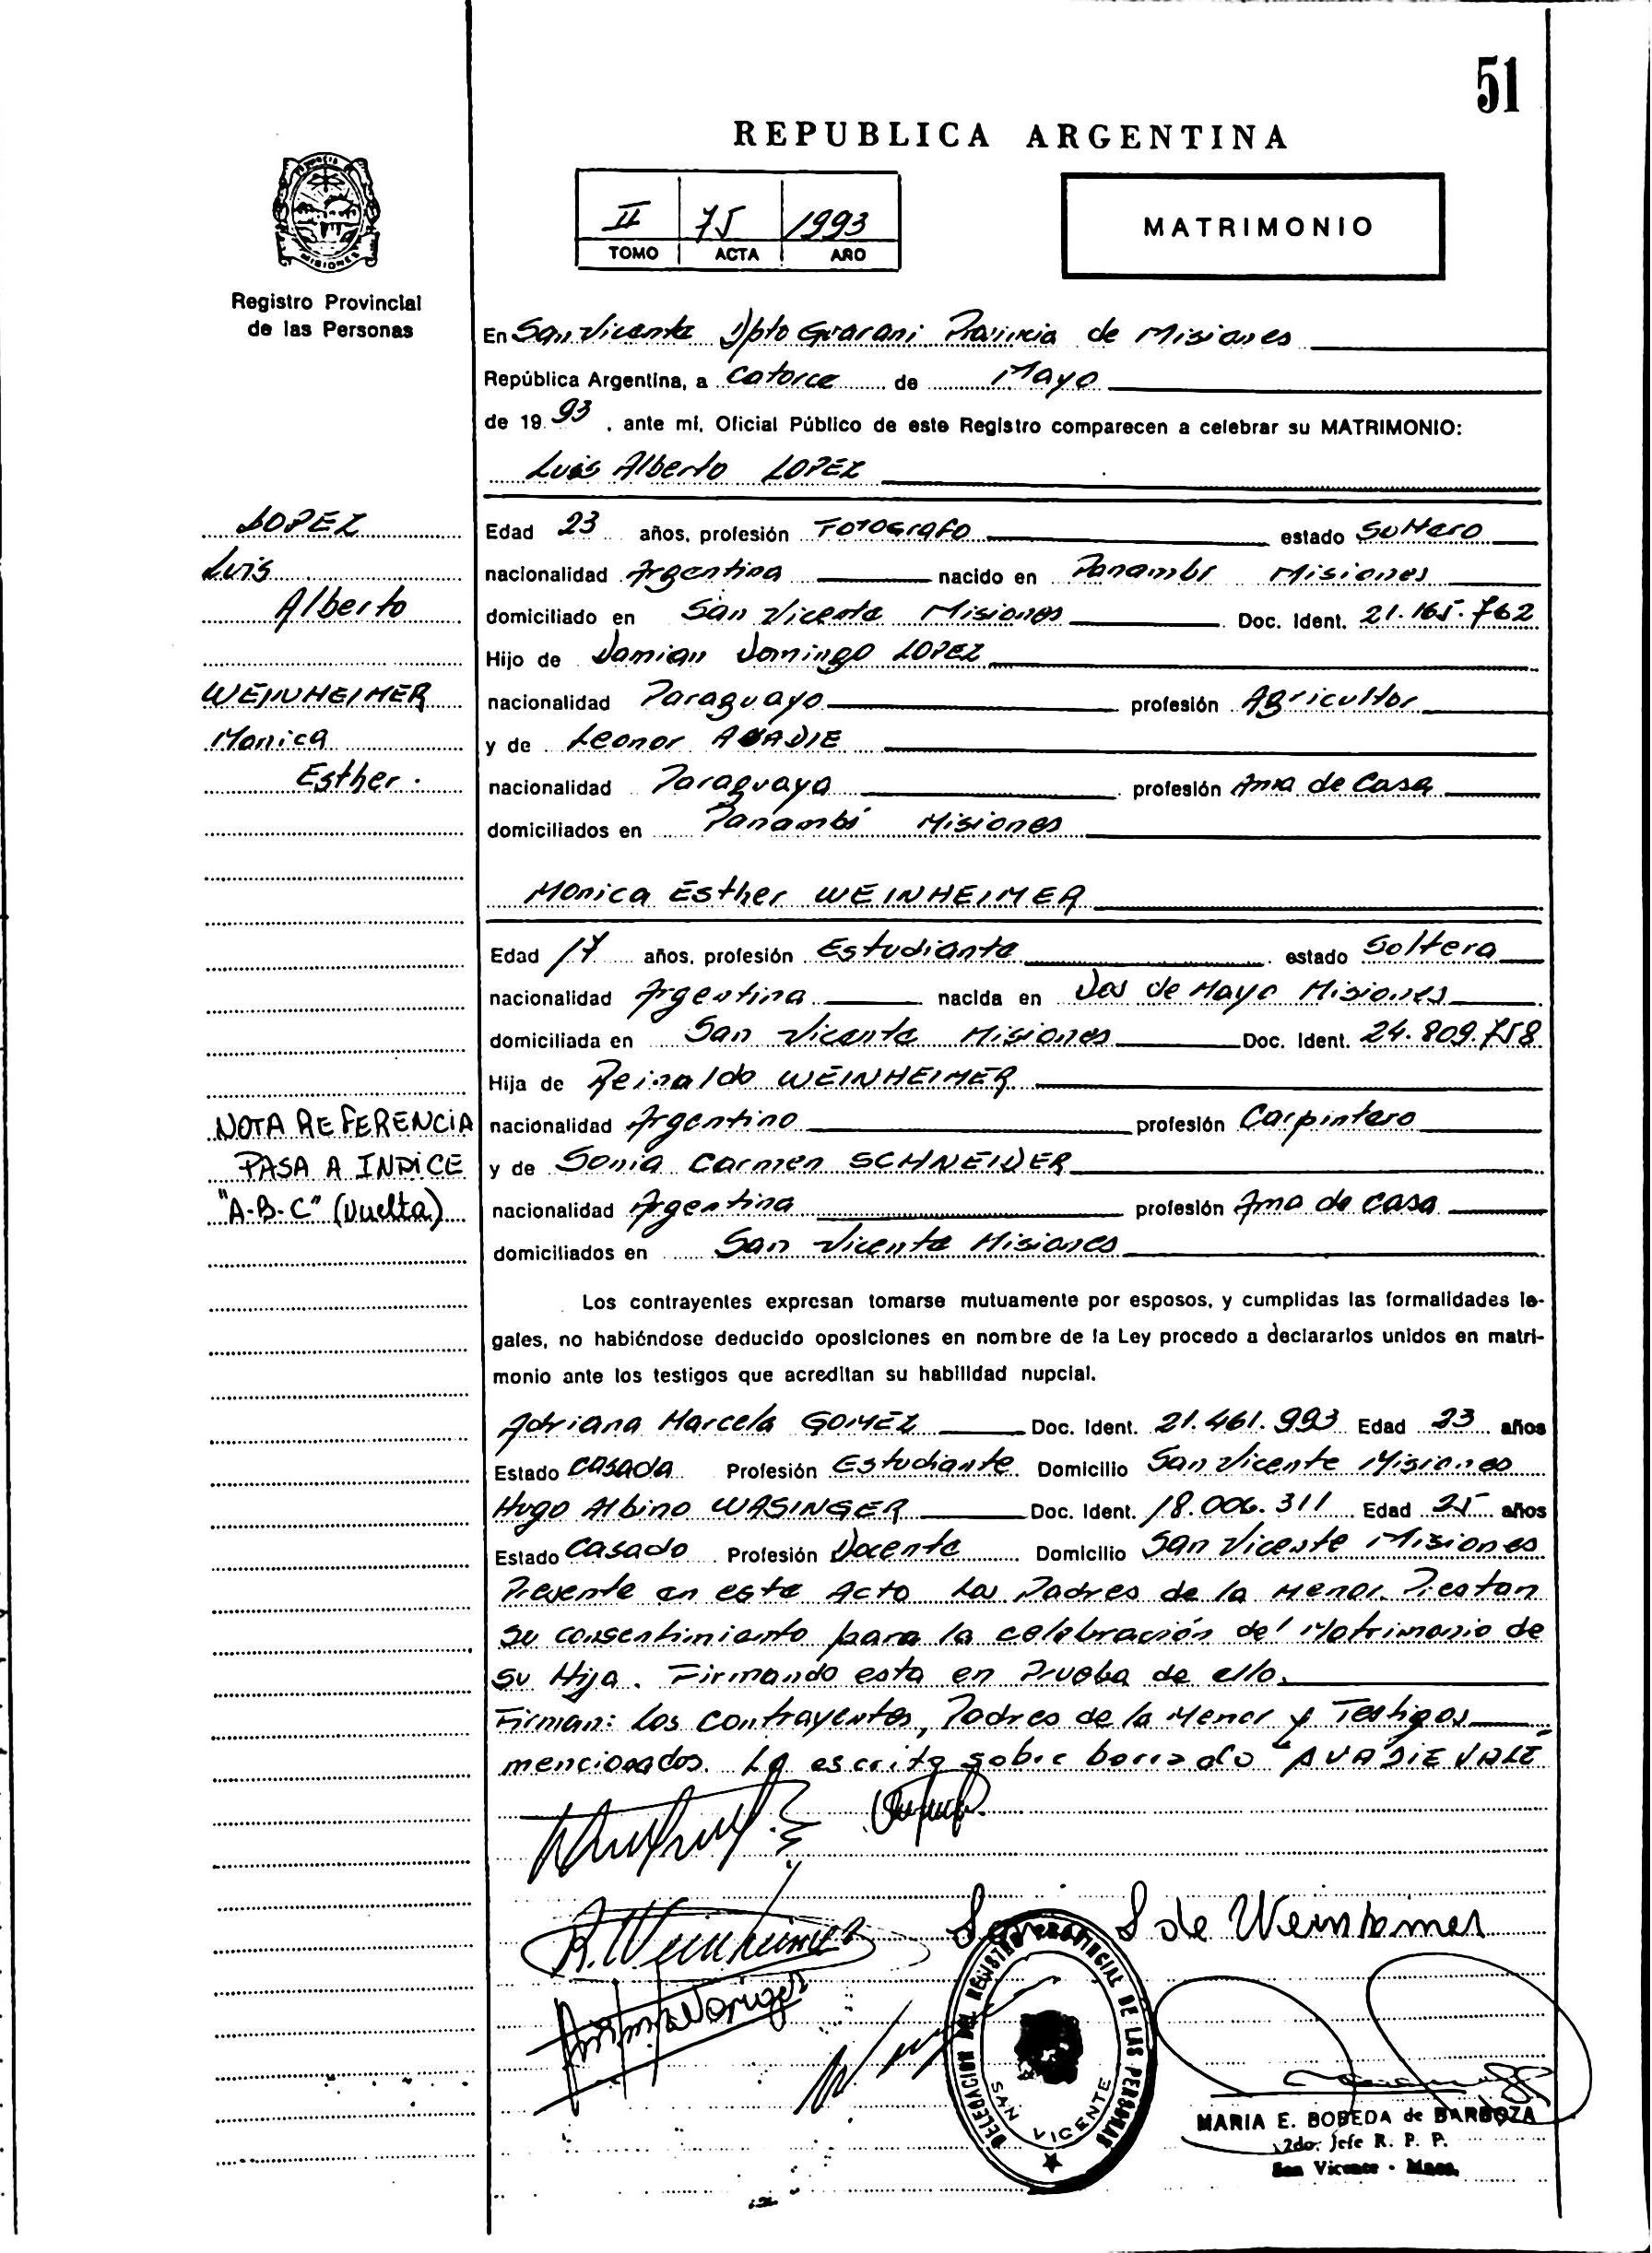 51
REPUBLICA ARGENTINA
II 75 1993
TOMO ACTA AÑO
MATRIMONIO
MISIONES
Registro Provincial
de las Personas
En San Vicente Dpto Guarani Provincia de Misiones
República Argentina, a catorce de Mayo
de 19 93, ante mí, Oficial Público de este Registro comparecen a celebrar su MATRIMONIO:
Luis Alberto LOPEZ
LOPEZ
Luis
Alberto
WEINHEIMER
Monica
Esther.
Edad 23 años, profesión Fotografo estado Soltero
nacionalidad Argentina nacido en Panambí Misiones
domiciliado en San Vicente Misiones Doc. Ident. 21.165.762
Hijo de Damian Domingo LOPEZ
nacionalidad Paraguayo profesión Agricultor
y de Leonor AVADIE
nacionalidad Paraguaya profesión Ama de Casa
domiciliados en Panambí Misiones
Monica Esther WEINHEIMER
Edad 17 años, profesión Estudiante estado Soltera
nacionalidad Argentina nacida en Dos de Mayo Misiones
domiciliada en San Vicente Misiones Doc. Ident. 24.809.758
Hija de Reinaldo WEINHEIMER
nacionalidad Argentino profesión Carpintero
y de Sonia Carmen SCHNEIDER
nacionalidad Argentina profesión Ama de casa
domiciliados en San Vicente Misiones
NOTA REFERENCIA
PASA A INDICE
"A-B-C" (Vuelta)
Los contrayentes expresan tomarse mutuamente por esposos, y cumplidas las formalidades le-
gales, no habiéndose deducido oposiciones en nombre de la Ley procedo a declararlos unidos en matri-
monio ante los testigos que acreditan su habilidad nupcial.
Adriana Marcela GOMEZ Doc. Ident. 21.461.993 Edad 23 años
Estado Casada Profesión Estudiante Domicilio San Vicente Misiones
Hugo Albino WASINGER Doc. Ident. 18.006.311 Edad 25 años
Estado Casado Profesión Docente Domicilio San Vicente Misiones
Presente en este Acto los Padres de la Menor. Prestan
su consentimiento para la celebración del Matrimonio de
su Hija. Firmando esta en Prueba de ello.
Firman: los contrayentes, Padres de la Menor y Testigos
mencionados. Lo escrito sobre borrado "AVADIE VALE"
R. Weinheimer
S de Weinheimer
DELEGACION DEL REGISTRO PROVINCIAL DE LAS PERSONAS
SAN VICENTE
MARIA E. BOBEDA de BARBOZA
2do. Jefe R. P. P.
San Vicente - Mnes.